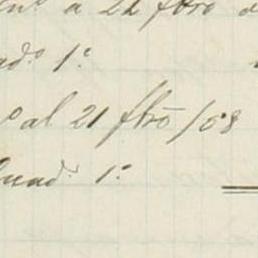 a 21 fbro
ad.º 1.º
º al 21 fbrō/08
uad. 1.º